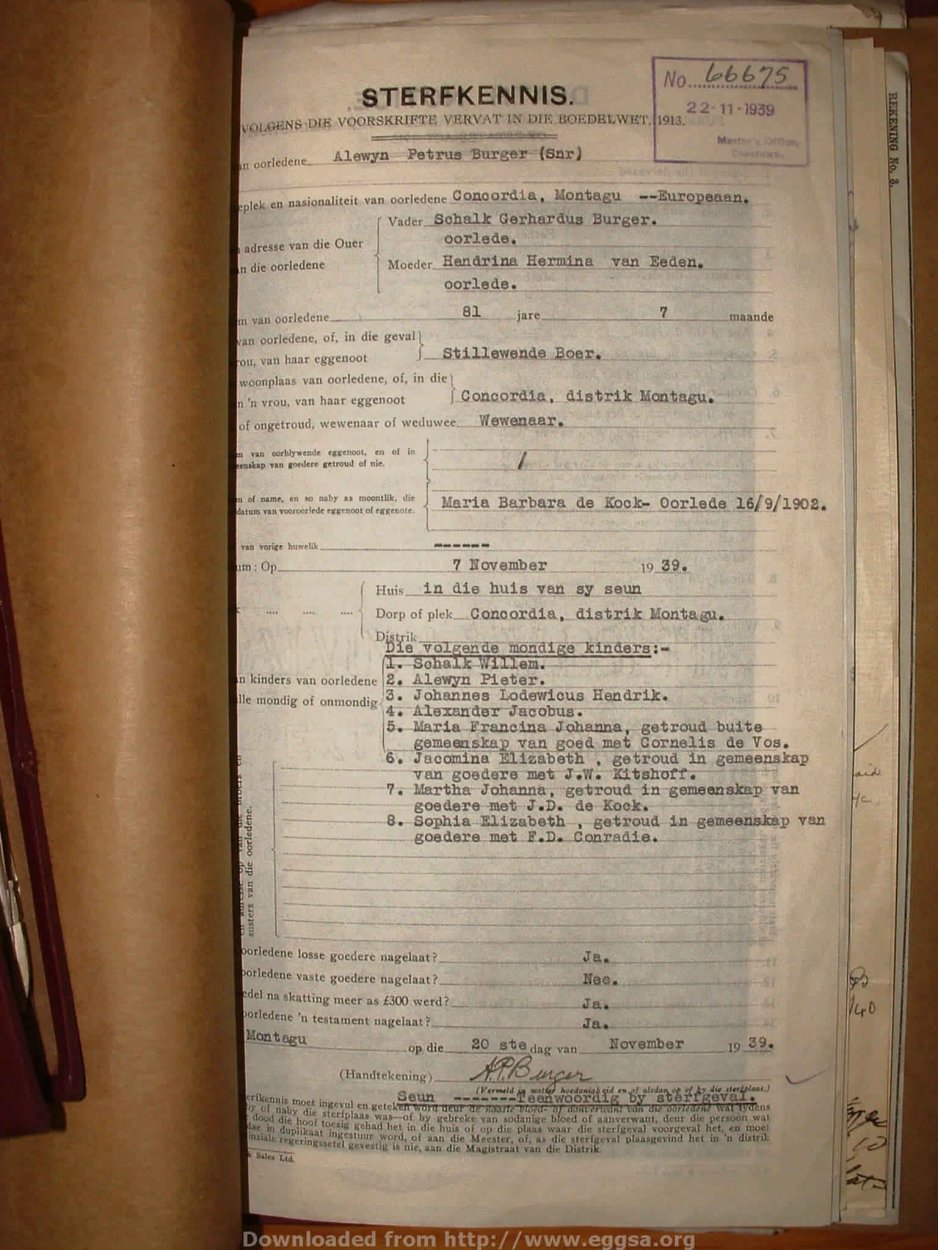 No. 66675
22-11-1939
Master's Office,
STERFKENNIS.
VOLGENS DIE VOORSKRIFTE VERVAT IN DIE BOEDELWET, 1913.
an oorledene Alewyn Petrus Burger (Snr)
eplek en nasionaliteit van oorledene Concordia, Montagu --Europeaan.
Vader Schalk Gerhardus Burger.
adresse van die Ouer oorlede.
n die oorledene Moeder Hendrina Hermina van Eeden.
oorlede.
m van oorledene 81 jare 7 maande
van oorledene, of, in die geval
rou, van haar eggenoot Stillewende Boer.
woonplaas van oorledene, of, in die
n 'n vrou, van haar eggenoot Concordia, distrik Montagu.
of ongetroud, wewenaar of weduwee Wewenaar.
m van oorblywende eggenoot, en of in
eenskap van goedere getroud of nie. /
m of name, en so naby as moontlik, die
datum van vooroorlede eggenoot of eggenote. Maria Barbara de Kock- Oorlede 16/9/1902.
van vorige huwelik ------
um: Op 7 November 1939.
Huis in die huis van sy seun
Dorp of plek Concordia, distrik Montagu.
Distrik
Die volgende mondige kinders:-
1. Schalk Willem.
n kinders van oorledene 2. Alewyn Pieter.
lle mondig of onmondig 3. Johannes Lodewicus Hendrik.
4. Alexander Jacobus.
5. Maria Francina Johanna, getroud buite
gemeenskap van goed met Cornelis de Vos.
6. Jacomina Elizabeth , getroud in gemeenskap
van goedere met J.W. Kitshoff.
7. Martha Johanna, getroud in gemeenskap van
goedere met J.D. de Kock.
8. Sophia Elizabeth , getroud in gemeenskap van
goedere met F.D. Conradie.
susters van die oorledene.
oorledene losse goedere nagelaat? Ja.
oorledene vaste goedere nagelaat? Nee.
edel na skatting meer as £300 werd? Ja.
oorledene 'n testament nagelaat? Ja.
Montagu op die 20 ste dag van November 1939.
(Handtekening) A.P. Burger
(Vermeld in watter hoedanigheid en of aldan op of by die sterfplaas.)
Seun -------Teenwoordig by sterfgeval.
erfkennis moet ingevul en geteken word deur die naaste bloed- of aanverwant van die oorledene wat tydens
of naby die sterfplaas was—of by gebreke van sodanige bloed of aanverwant, deur die persoon wat
dood die hoof toesig gehad het in die huis of op die plaas waar die sterfgeval voorgeval het, en moet
in duplikaat ingestuur word, of aan die Meester, of, as die sterfgeval plaasgevind het in 'n distrik
regeringssetel gevestig is nie, aan die Magistraat van die Distrik.
Sales Ltd.
REKENING No. 3.
Downloaded from http://www.eggsa.org